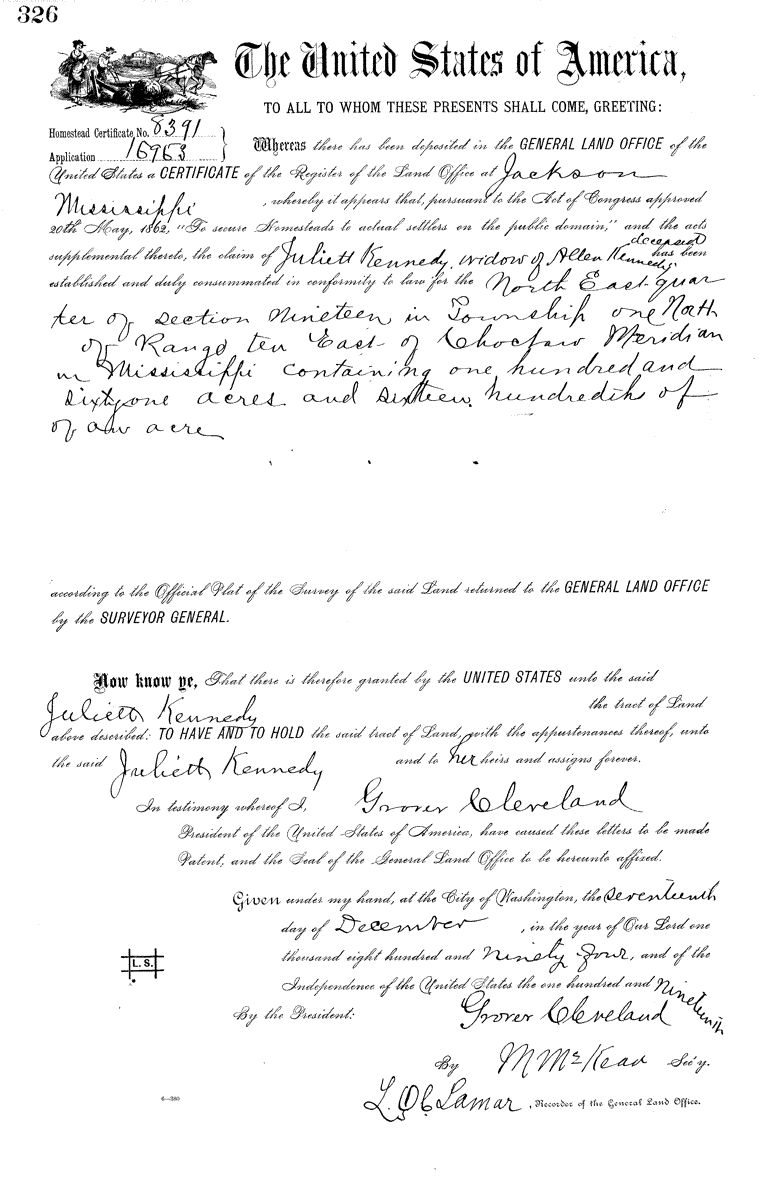 326
The United States of America,
TO ALL TO WHOM THESE PRESENTS SHALL COME, GREETING:
Homestead Certificate No. 8391
Application 16963
Whereas there has been deposited in the GENERAL LAND OFFICE of the
United States a CERTIFICATE of the Register of the Land Office at Jackson
Mississippi , whereby it appears that, pursuant to the Act of Congress approved
20th May, 1862, "To secure Homesteads to actual settlers on the public domain," and the acts
deceased
supplemental thereto, the claim of Juliett Kennedy, widow of Allen Kennedy, has been
established and duly consummated in conformity to law for the North East quar
ter of section nineteen in Township one North
of Range ten East of Choctaw Meridian
in Mississippi containing one hundred and
sixty one acres and sixteen hundredths of
of an acre
according to the Official Plat of the Survey of the said Land returned to the GENERAL LAND OFFICE
by the SURVEYOR GENERAL.
Now know ye, That there is therefore granted by the UNITED STATES unto the said
Juliett Kennedy the tract of Land
above described: TO HAVE AND TO HOLD the said tract of Land, with the appurtenances thereof, unto
the said Juliett Kennedy and to her heirs and assigns forever.
In testimony whereof I, Grover Cleveland
President of the United States of America, have caused these letters to be made
Patent, and the Seal of the General Land Office to be hereunto affixed.
Given under my hand, at the City of Washington, the seventeenth
day of December , in the year of Our Lord one
thousand eight hundred and ninety four, and of the
L. S.
Independence of the United States the one hundred and nineteenth
By the President: Grover Cleveland
By M McKean Sec'y.
L. Q. C. Lamar , Recorder of the General Land Office.
6—380